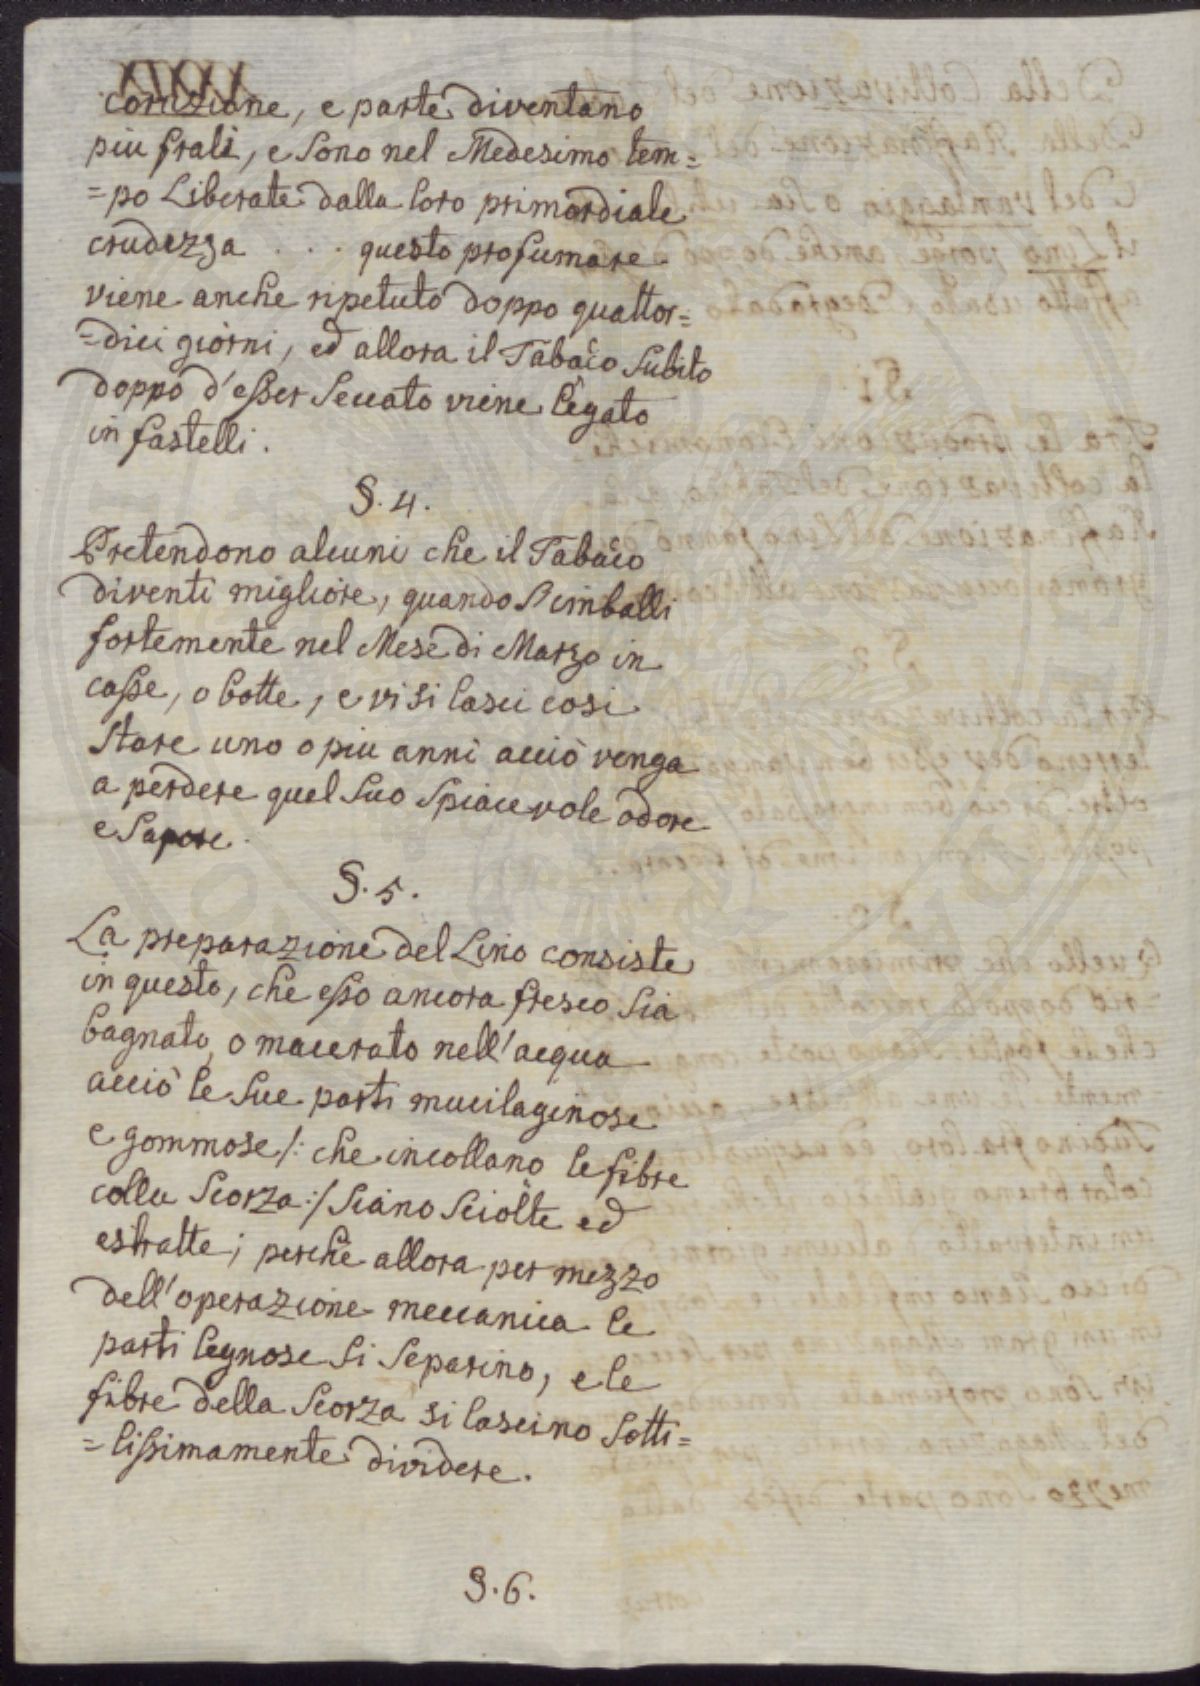 coruzione, e parte diventano
piu frali, e sono nel Medesimo tem=
=po Liberate dalla loro primordiale
crudezza . . . questo profumare
viene anche ripetuto doppo quattor=
=dici giorni, ed allora il Tabacco subito
doppo d'esser seccato viene legato
in fastelli.
§. 4.
Pretendono alcuni che il Tabacco
diventi migliore, quando s'imballi
fortemente nel Mese di Marzo in
casse, o botte, e vi si lasci cosi
stare uno o piu anni acciò venga
a perdere quel suo spiacevole odore
e sapore.
§. 5.
La preparazione del Lino consiste
in questo, che esso ancora fresco sia
bagnato, o macerato nell'acqua
acciò le sue parti mucilaginose
e gommose /: che incollano le fibre
colla scorza :/ siano sciolte ed
estratte; perchè allora per mezzo
dell'operazione meccanica le
parti legnose si separino, e le
fibre della scorza si lascino sotti=
=lissimamente dividere.
§. 6.